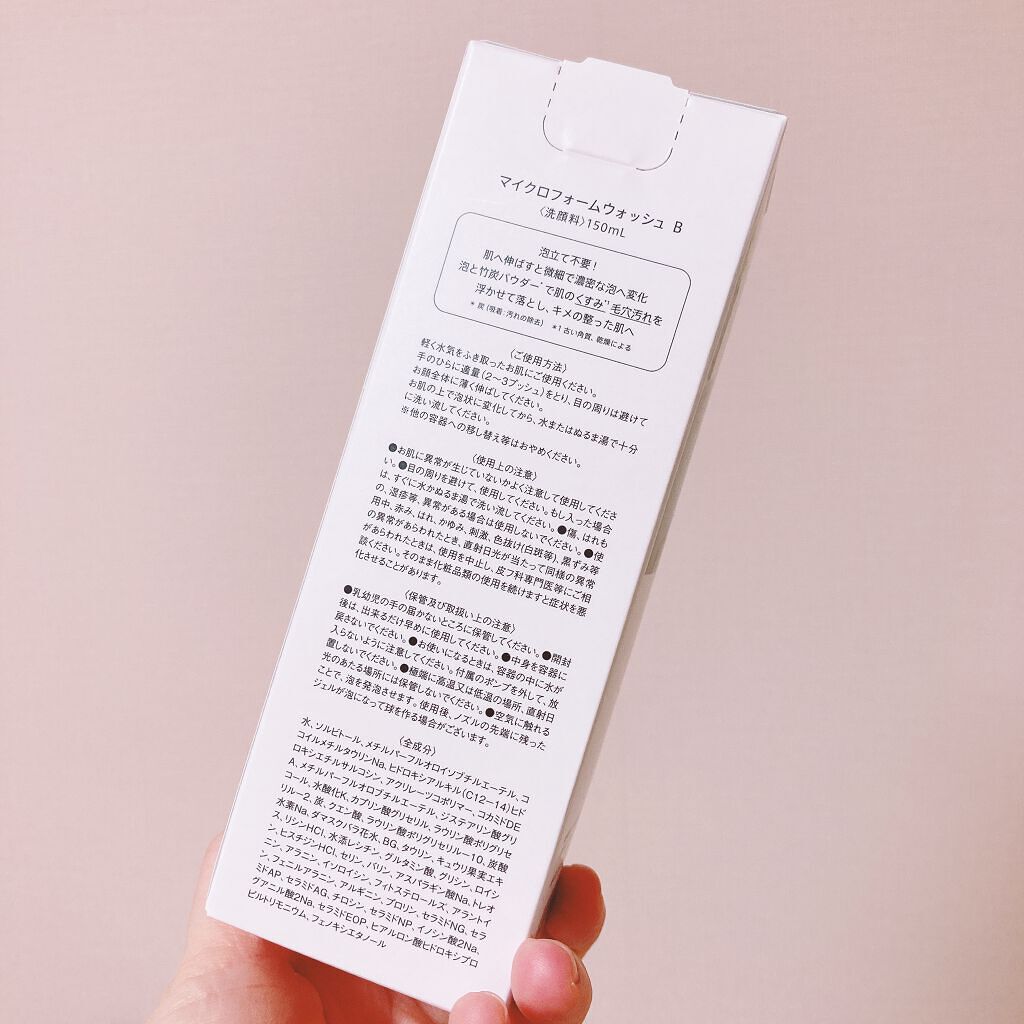 マイクロフォームウォッシュ B
〈洗顔料〉150mL
泡立て不要！
肌へ伸ばすと微細で濃密な泡へ変化
泡と竹炭パウダー*で肌のくすみ*1毛穴汚れを
浮かせて落とし、キメの整った肌へ
* 炭（吸着：汚れの除去） *1 古い角質、乾燥による
〈ご使用方法〉
軽く水気をふき取ったお肌にご使用ください。
手のひらに適量（2〜3プッシュ）をとり、目の周りは避けて
お顔全体に薄く伸ばしてください。
お肌の上で泡状に変化してから、水またはぬるま湯で十分
に洗い流してください。
※他の容器への移し替え等はおやめください。
〈使用上の注意〉
●お肌に異常が生じていないかよく注意して使用してくださ
い。●目の周りを避けて、使用してください。もし入った場合
は、すぐに水かぬるま湯で洗い流してください。●傷、はれも
の、湿疹等、異常がある場合は使用しないでください。●使
用中、赤み、はれ、かゆみ、刺激、色抜け(白斑等)、黒ずみ等
の異常があらわれたとき、直射日光が当たって同様の異常
があらわれたときは、使用を中止し、皮フ科専門医等にご相
談ください。そのまま化粧品類の使用を続けますと症状を悪
化させることがあります。
〈保管及び取扱い上の注意〉
●乳幼児の手の届かないところに保管してください。●開封
後は、出来るだけ早めに使用してください。●中身を容器に
戻さないでください。●お使いになるときは、容器の中に水が
入らないように注意してください。付属のポンプを外して、放
置しないでください。●極端に高温又は低温の場所、直射日
光のあたる場所には保管しないでください。●空気に触れる
ことで、泡を発泡させます。使用後、ノズルの先端に残った
ジェルが泡になって球を作る場合がございます。
〈全成分〉
水、ソルビトール、メチルパーフルオロイソブチルエーテル、コ
コイルメチルタウリンNa、ヒドロキシアルキル(C12−14)ヒド
ロキシエチルサルコシン、アクリレーツコポリマー、コカミドDE
A、メチルパーフルオロブチルエーテル、ジステアリン酸グリ
コール、水酸化K、カプリン酸グリセリル、ラウリン酸ポリグリセ
リル－2、炭、クエン酸、ラウリン酸ポリグリセリル－10、炭酸
水素Na、ダマスクバラ花水、BG、タウリン、キュウリ果実エキ
ス、リシンHCl、水添レシチン、グルタミン酸、グリシン、ロイシ
ン、ヒスチジンHCl、セリン、バリン、アスパラギン酸Na、トレオ
ニン、アラニン、イソロイシン、フィトステロールズ、アラントイ
ン、フェニルアラニン、アルギニン、プロリン、セラミドNG、セラ
ミドAP、セラミドAG、チロシン、セラミドNP、イノシン酸2Na、
グアニル酸2Na、セラミドEOP、ヒアルロン酸ヒドロキシプロ
ピルトリモニウム、フェノキシエタノール